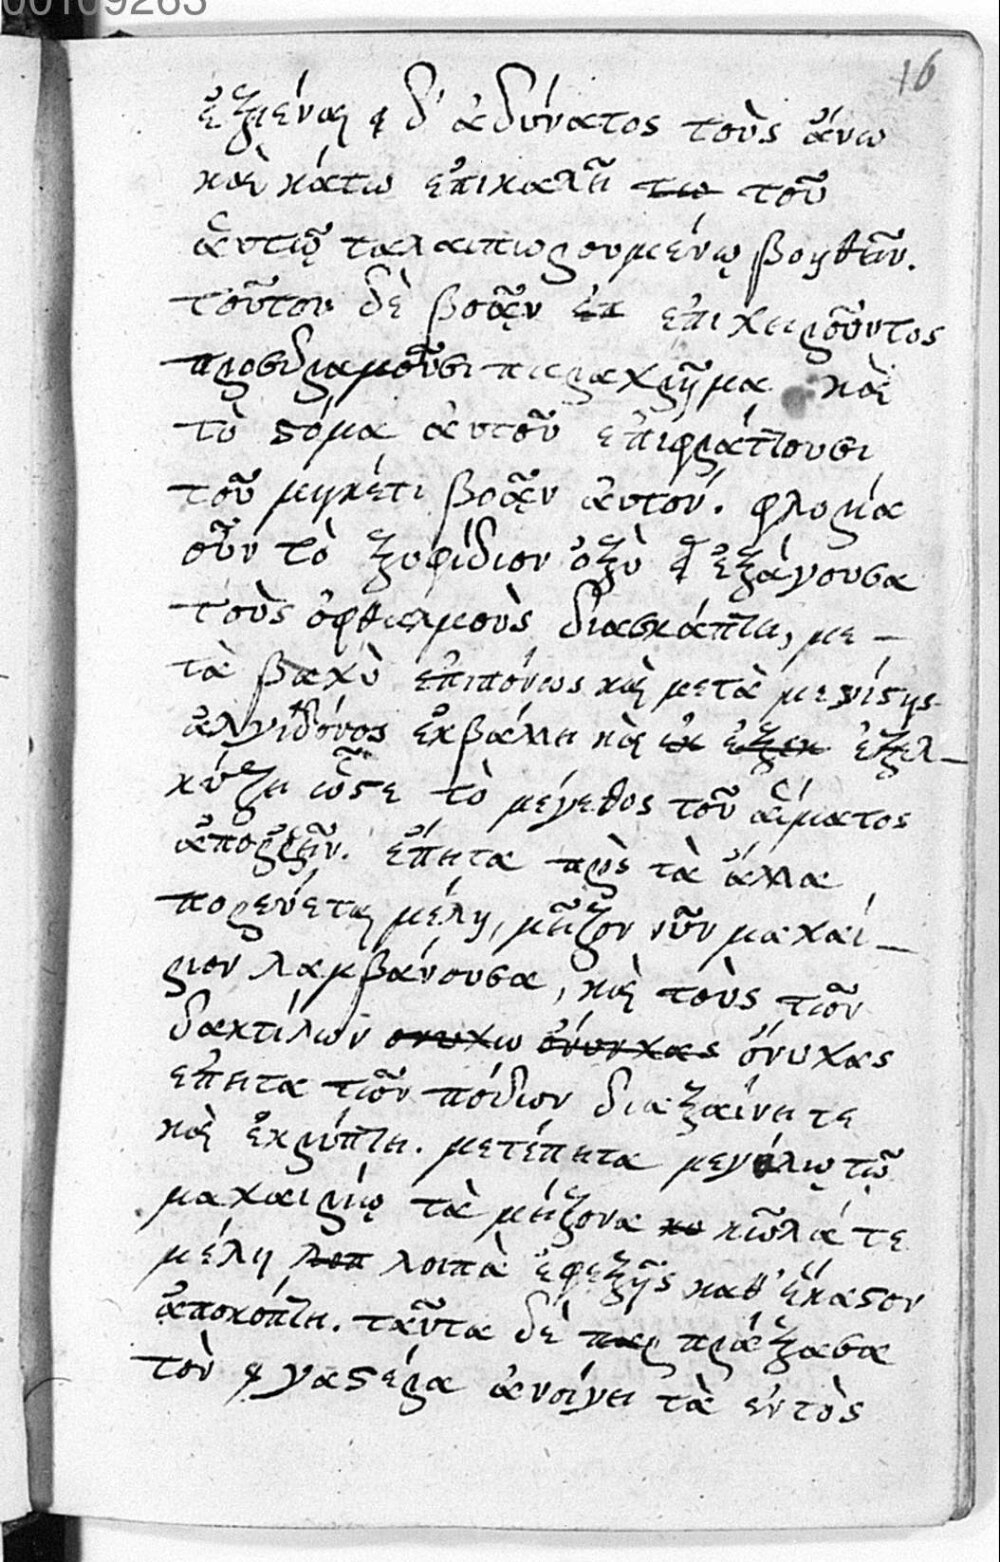 00109263
16
ἐξιέναι ϥ δ' ἀδύνατος τοὺς ἄνω
καὶ κάτω ἐπικαλεῖ τω τοῦ
ἀυτῷ ταλαιπωρουμένῳ βοηθεῖν.
τοῦτου δὲ βοᾷν ἐπ ἐπιχειροῦντος
προσδραμοῦσι παραχρῆμα καὶ
τὸ στόμα ἀυτοῦ ἐπιφράττουσι
τοῦ μηκέτι βοᾷν ἀυτόν. φλορία
οὖν τὸ ξυφίδιον ὀξὺ ϥ ἐξάγουσα
τοὺς ὀφθαλμοὺς διασκάπτει, με-
τὰ βαχὺ ἐπιπόνως καὶ μετὰ μεγίστης
ἀλγιδόνος ἐκβάλλει καὶ ἐκ ἐξεκ ἐξελ-
κύζει ὥστε τὸ μέγεθος τοῦ αἵματος
ἀποῤῥεῖν. ἔπειτα πρὸς τὰ ἄλλα
πορεύεται μέλη, μεῖζον νῦν μαχαί-
ριον λαμβάνουσα, καὶ τοὺς τῶν
δακτίλων ονυχω ὄνυνχας ὄνυχας
ἔπειτα τῶν πόδων διαξαίνει τε
καὶ ἐκρύπτει. μετέπειτα μεγάλῳ τῷ
μαχαιρίῳ τὰ μείζονα κω κῶλά τε
μέλη λοπ λοιπὰ ἐφεξῆς καθ' ἕκαστον
ἀποκόπτει. ταῦτα δὲ παρ πράξασα
τὸν ϥ γαστέρα ἀνοίγει τὰ ἐντὸς